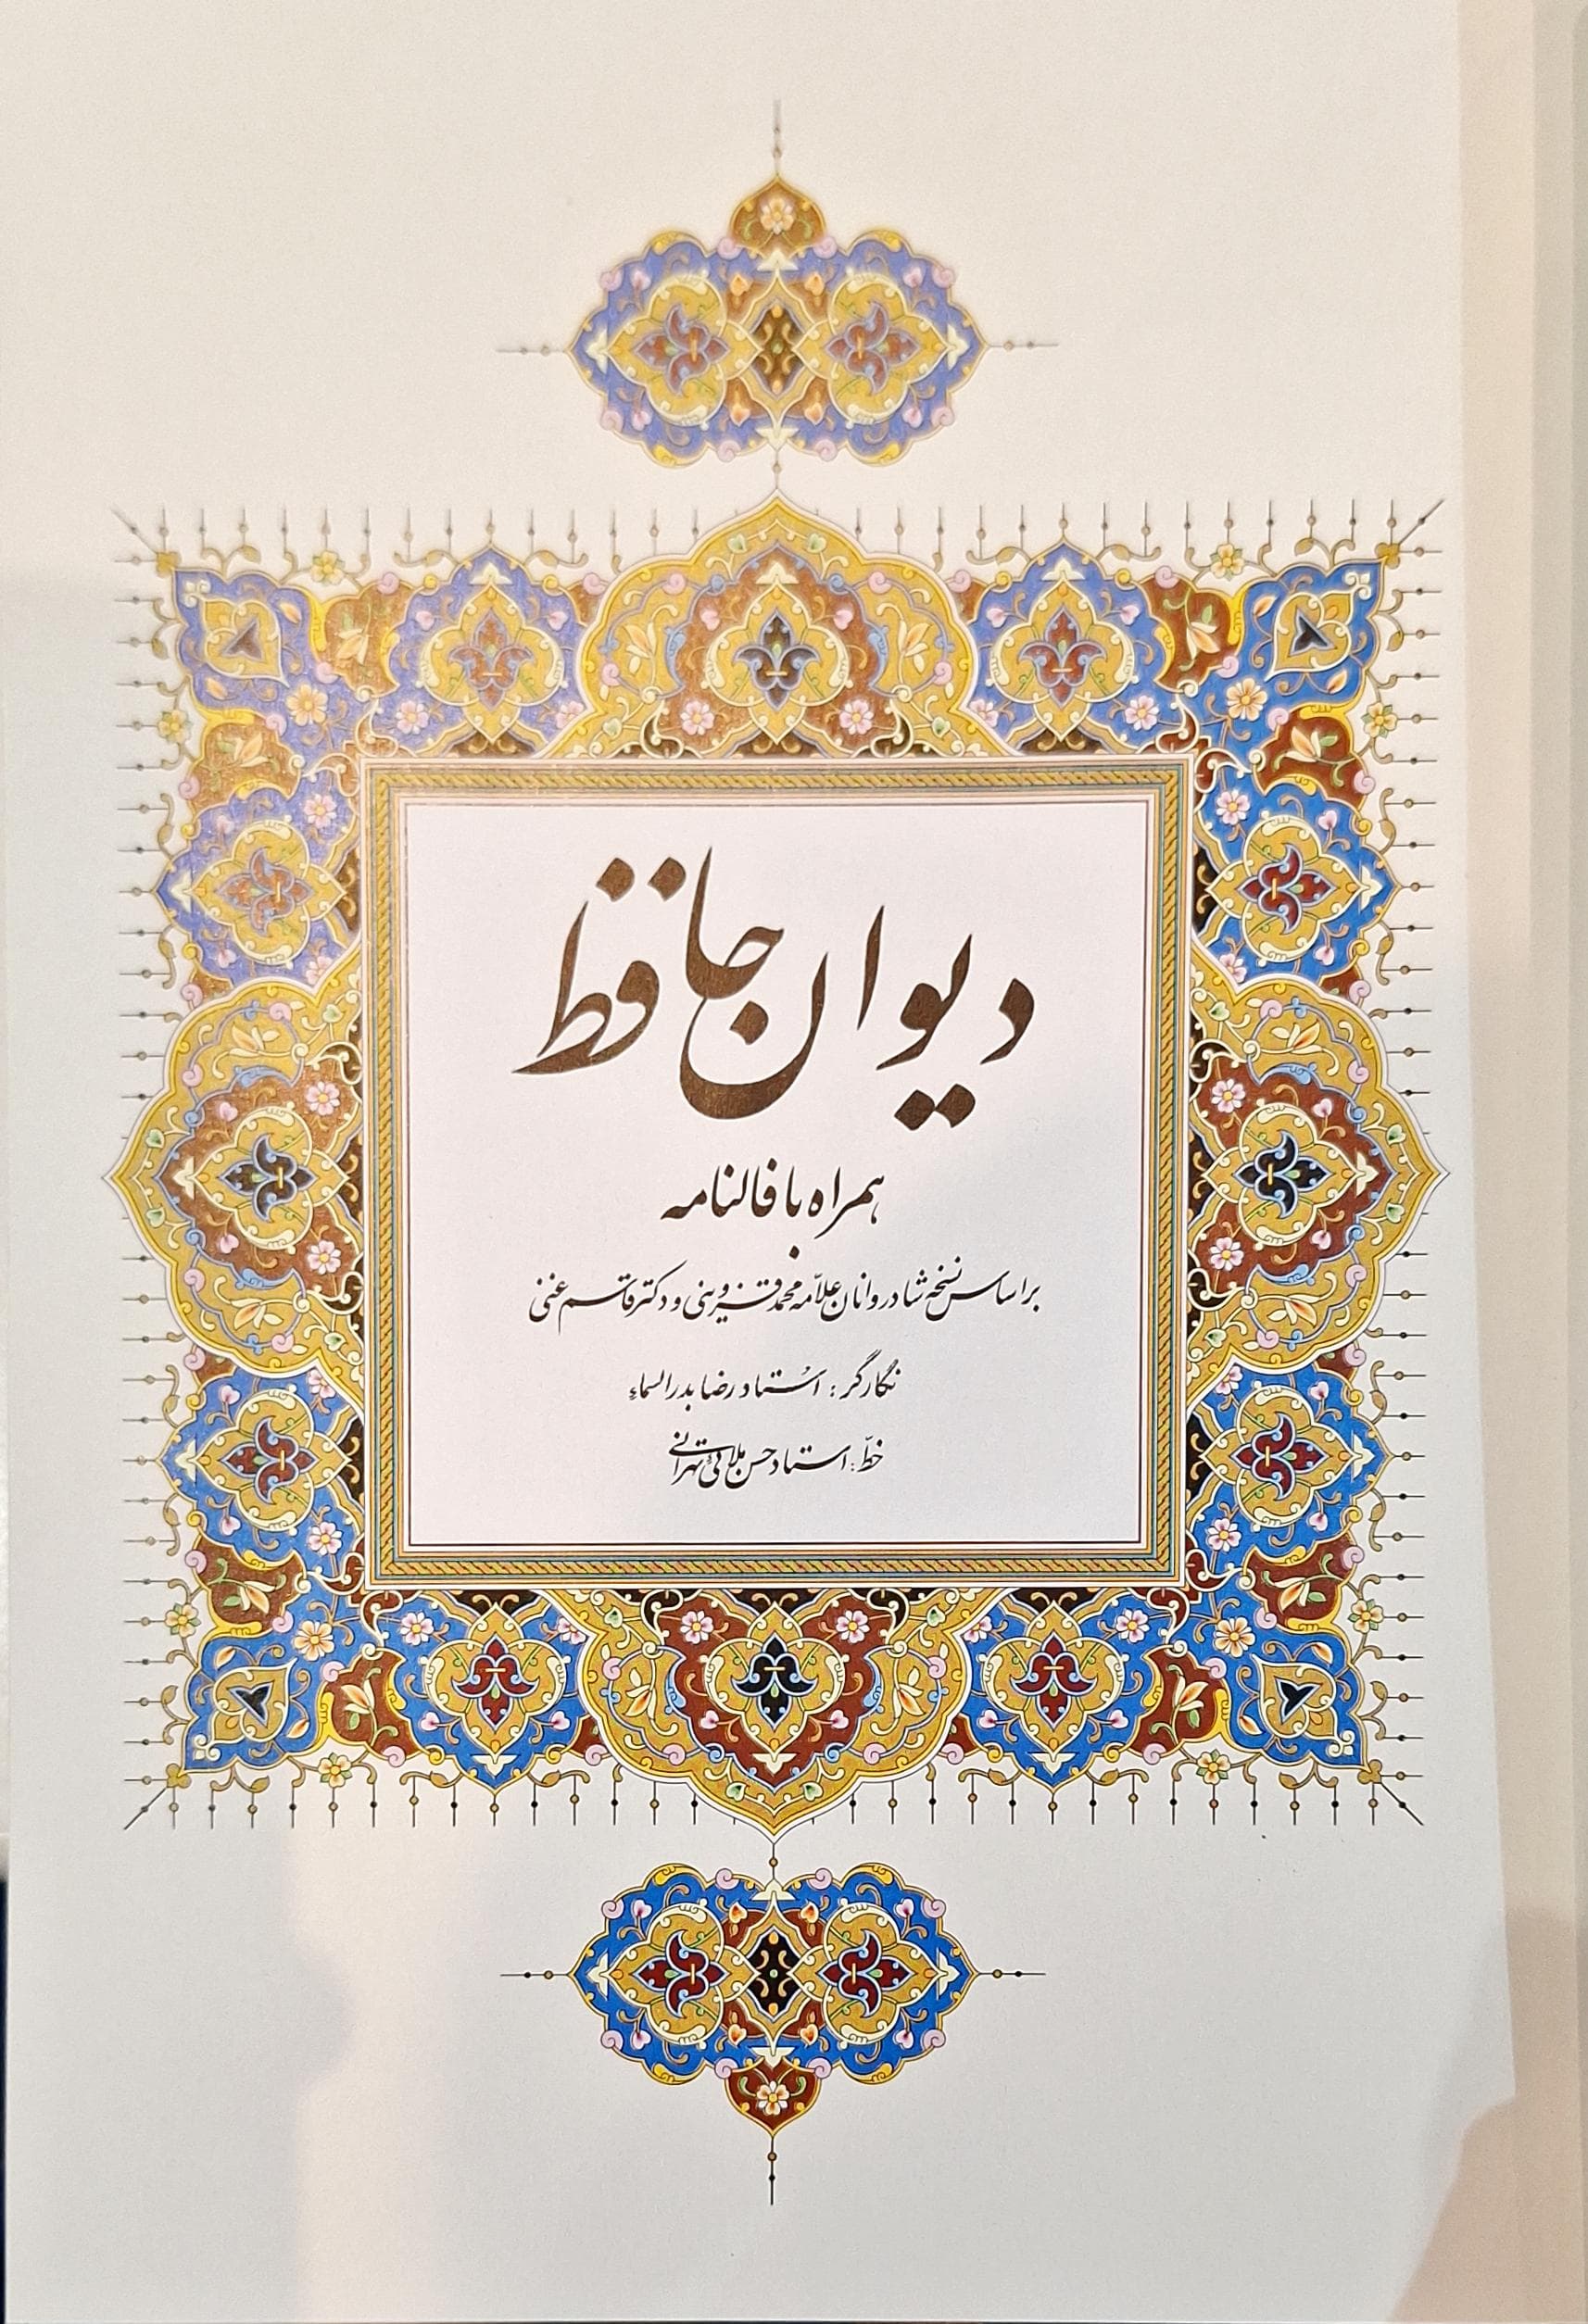 دیوان حافظ
همراه با فالنامه
براساس نسخه شادروانان علامّه محمد قزوینی و دکتر قاسم غنی
نگارگر : اُستاد رضا بدرالسماء
خطّ : استاد حسن ملائی تهرانی